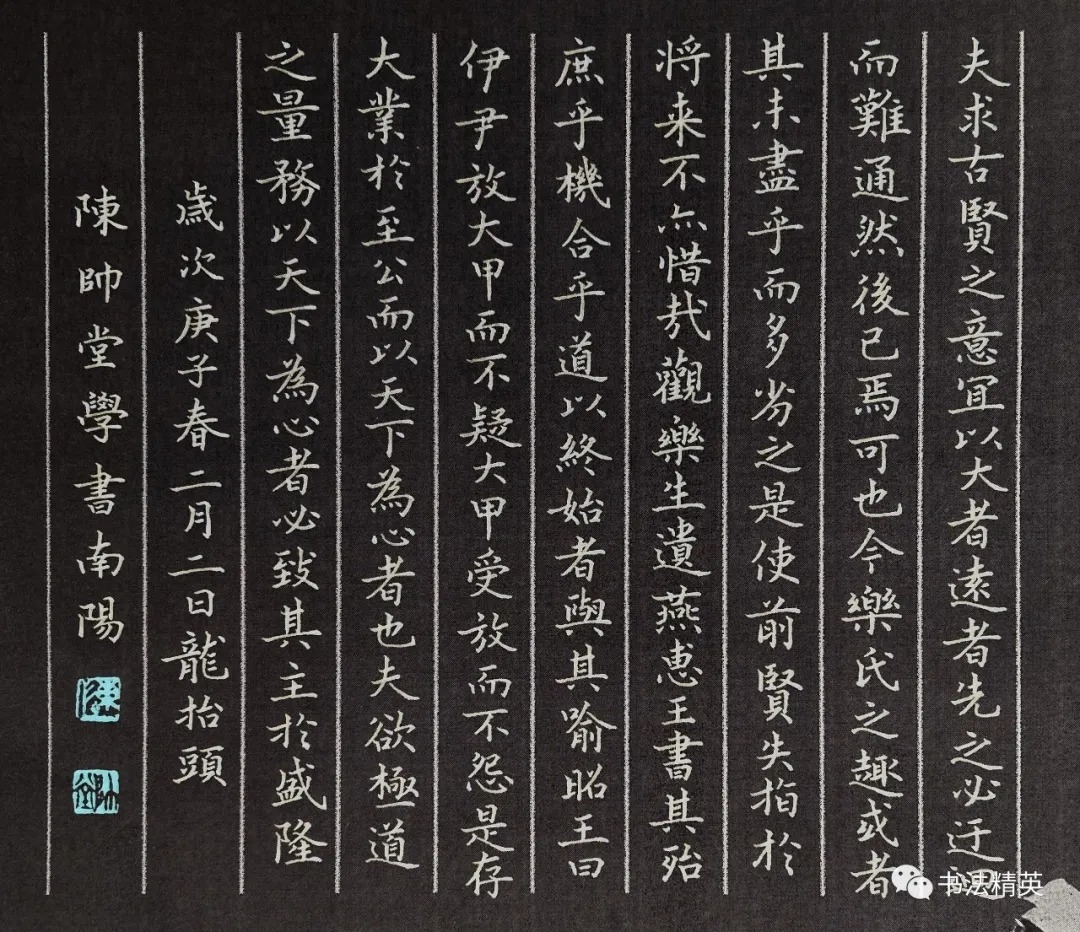 夫求古賢之意宜以大者遠者先之必迂迴
而難通然後已焉可也今樂氏之趣或者
其未盡乎而多劣之是使前賢失指於
将来不亦惜哉觀樂生遺燕惠王書其殆
庶乎機合乎道以終始者與其喻昭王曰
伊尹放大甲而不疑大甲受放而不怨是存
大業於至公而以天下為心者也夫欲極道
之量務以天下為心者必致其主於盛隆
歲次庚子春二月二日龍抬頭
陳帥堂學書南陽
书法精英